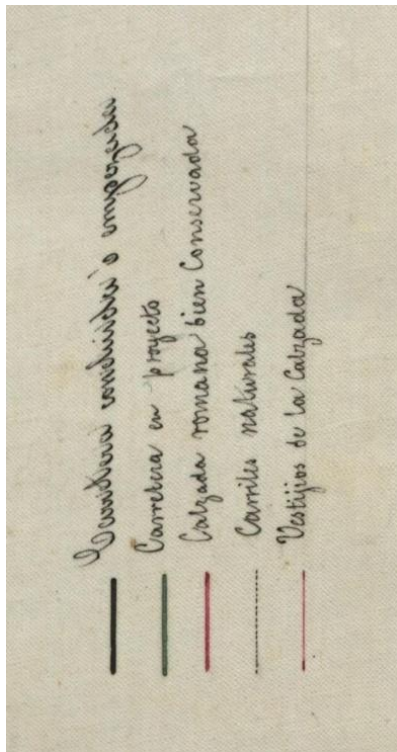 Carretera concluida o empezada
Carretera en proyecto
Calzada romana bien Conservada
Carriles naturales
Vestijios de la Calzada